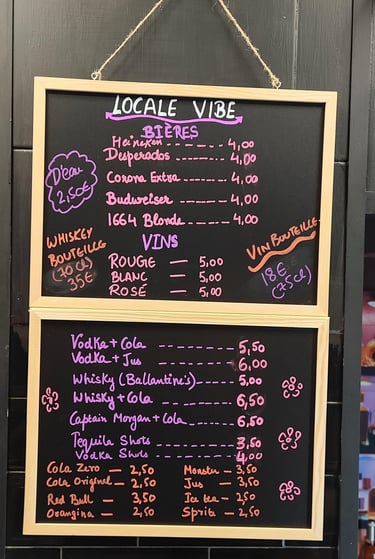 LOCALE VIBE
BIÈRES
Heineken ------- 4,00
Desperados ------- 4,00
Corona Extra ------- 4,00
Budweiser ------- 4,00
1664 Blonde ------- 4,00
D'eau
2,50€
WHISKEY
BOUTEILLE
(70 cl)
35€
VINS
ROUGIE — 5,00
BLANC — 5,00
ROSÉ — 5,00
VIN BOUTEILLE
18€
(75cl)
Vodka + Cola ------- 5,50
Vodka + Jus ------- 6,00
Whisky (Ballantine's) ----- 5,00
Whisky + Cola ------- 6,50
Captain Morgan + Cola ----- 6,50
Tequila Shots ------- 3,50
Vodka Shots ------- 4,00
Cola Zero — 2,50
Cola Original — 2,50
Red Bull — 3,50
Orangina — 2,50
Monster — 3,50
Jus — 3,50
Ice tea — 2,50
Sprite — 2,50